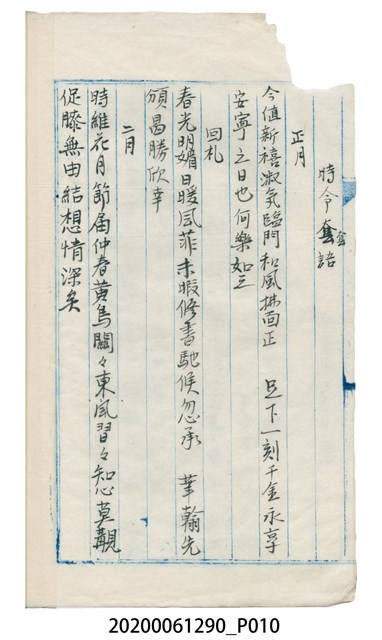 時令套語
套
正月
今值新禧淑氣臨門和風拂面正 足下一刻千金永享
安寧之日也何樂如之
回札
春光明媚日暖風菲未暇修書馳候忽承 華翰先
頒曷勝欣幸
二月
時維花月節届仲春黃鳥關々東風習々知心莫覿
促膝無由結想情深矣
20200061290_P010